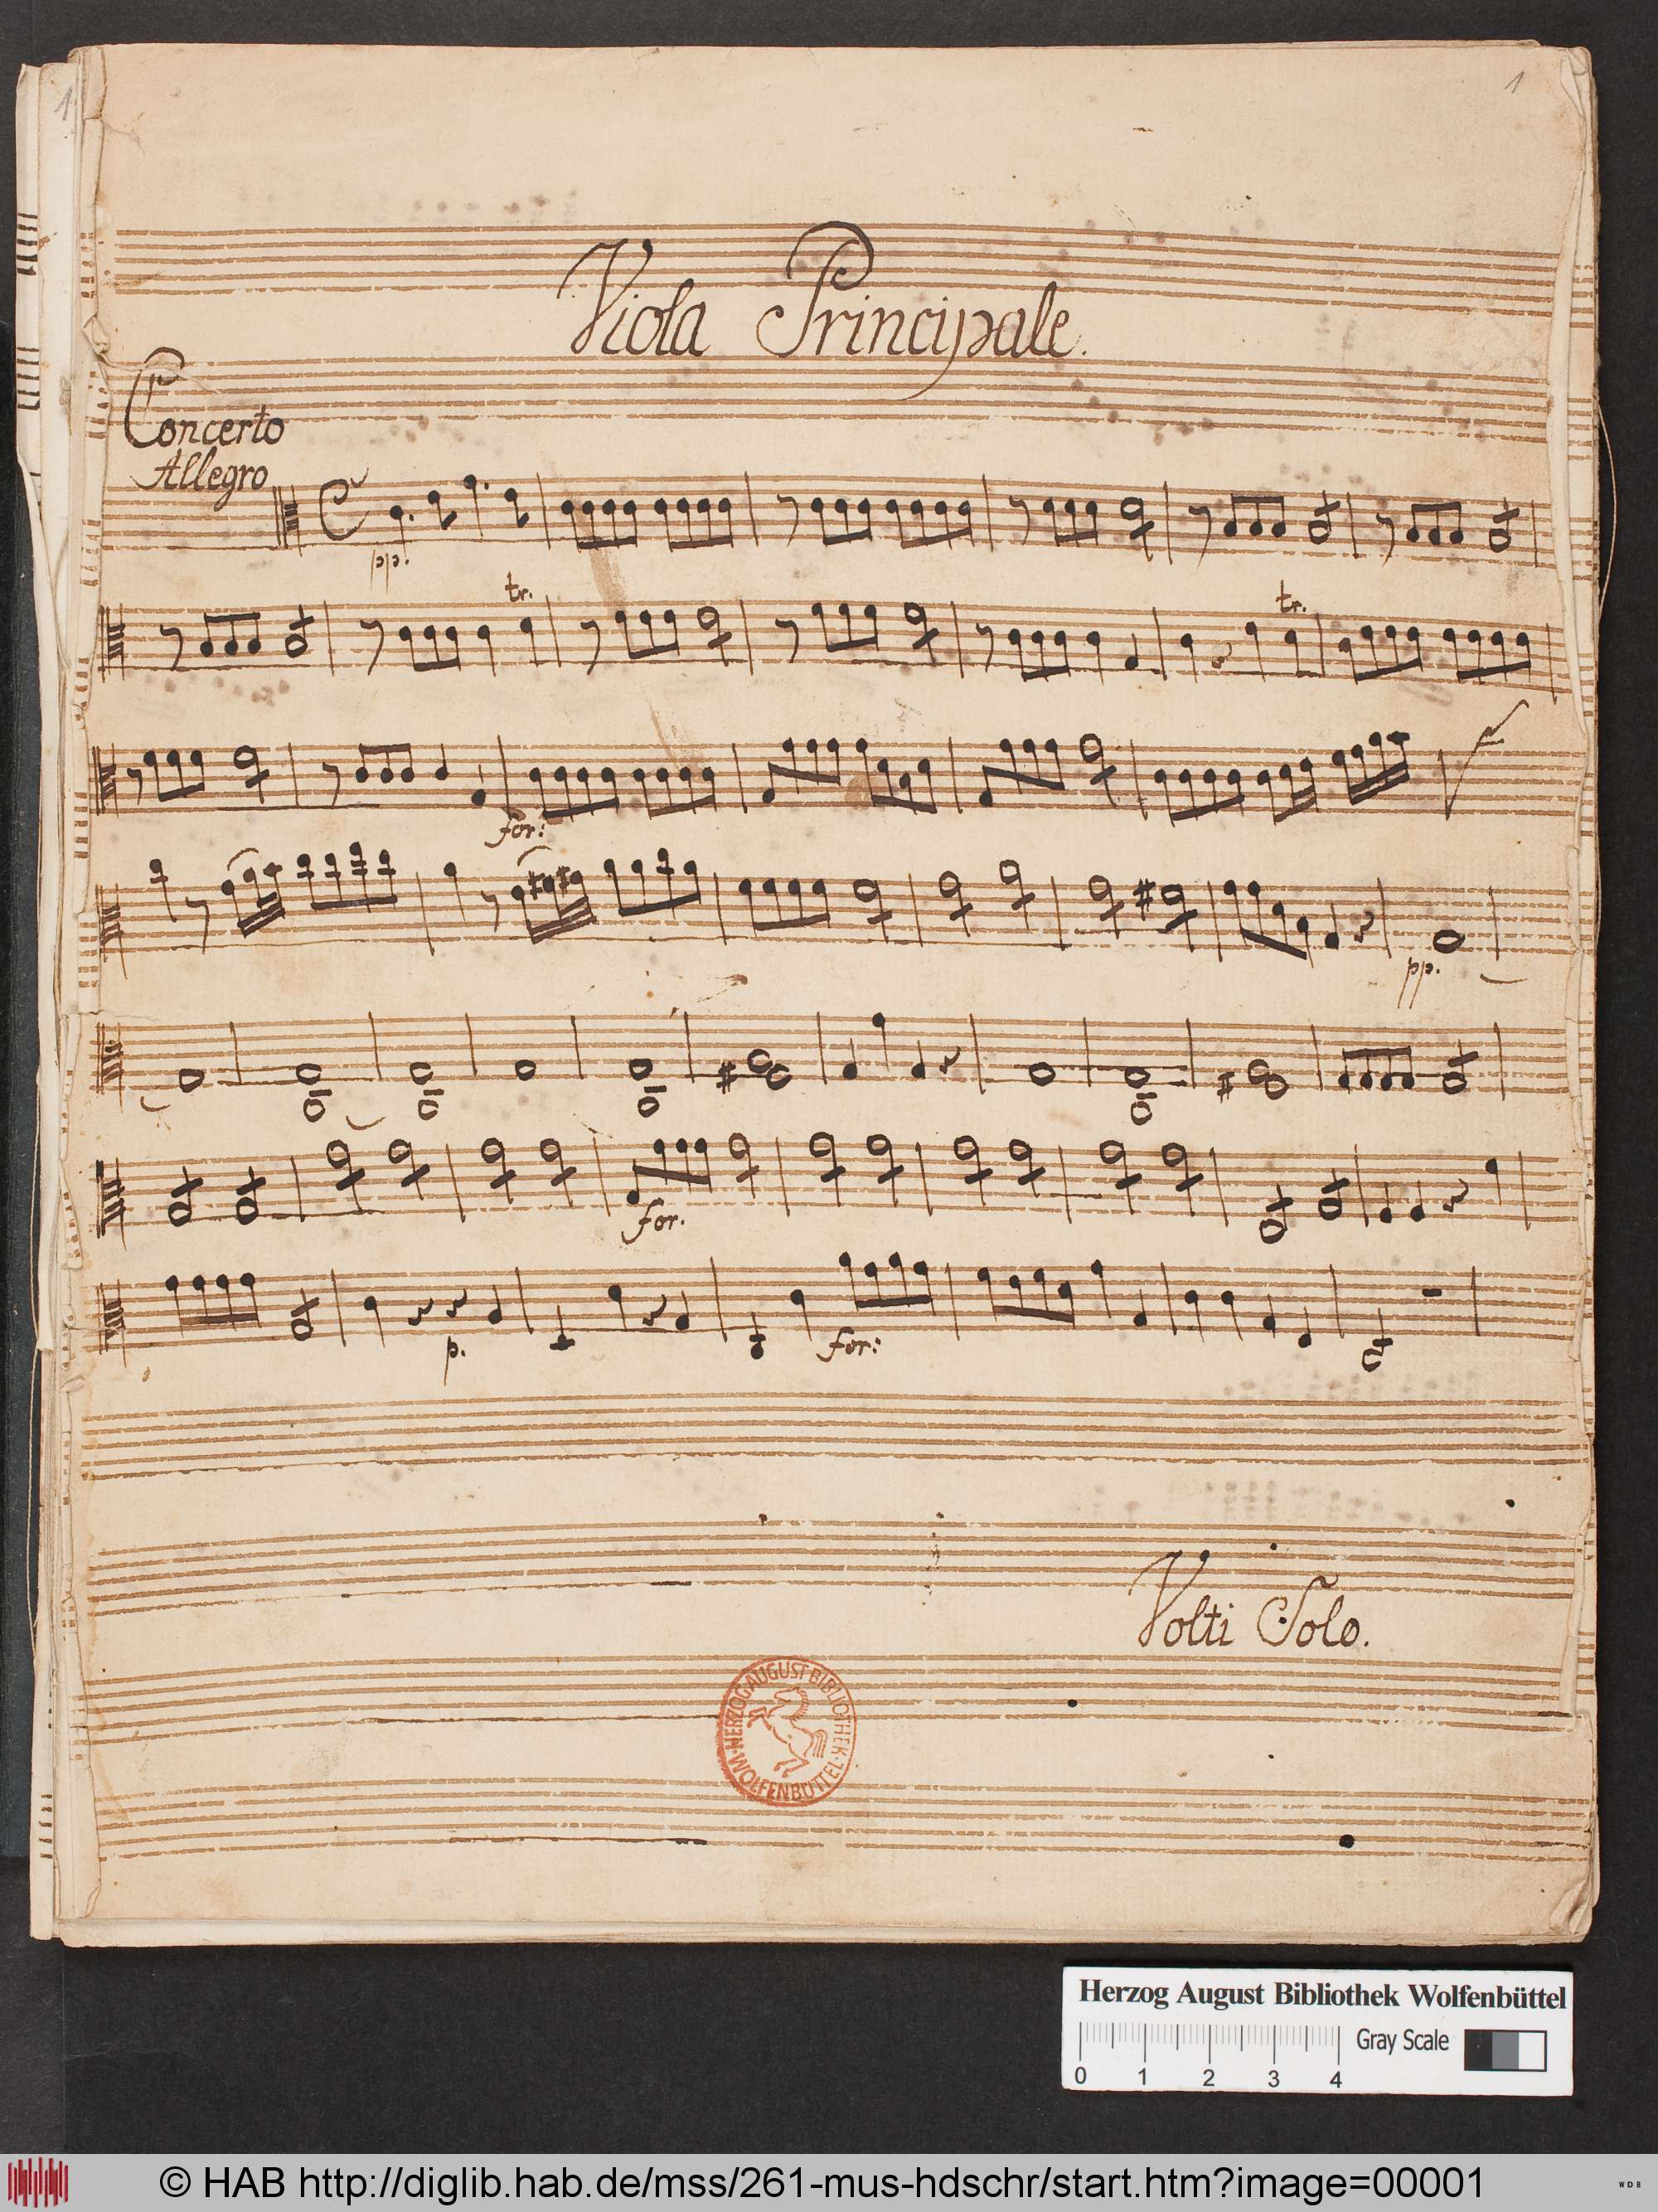 1
1
Viola Principale.
Concerto
Allegro
pp.
tr. tr.
for:
pp.
for.
p. for:
Volti Solo.
HERZOG AUGUST BIBLIOTHEK · WOLFENBÜTTEL ·
Herzog August Bibliothek Wolfenbüttel
Gray Scale
0 1 2 3 4
© HAB http://diglib.hab.de/mss/261-mus-hdschr/start.htm?image=00001
WDB